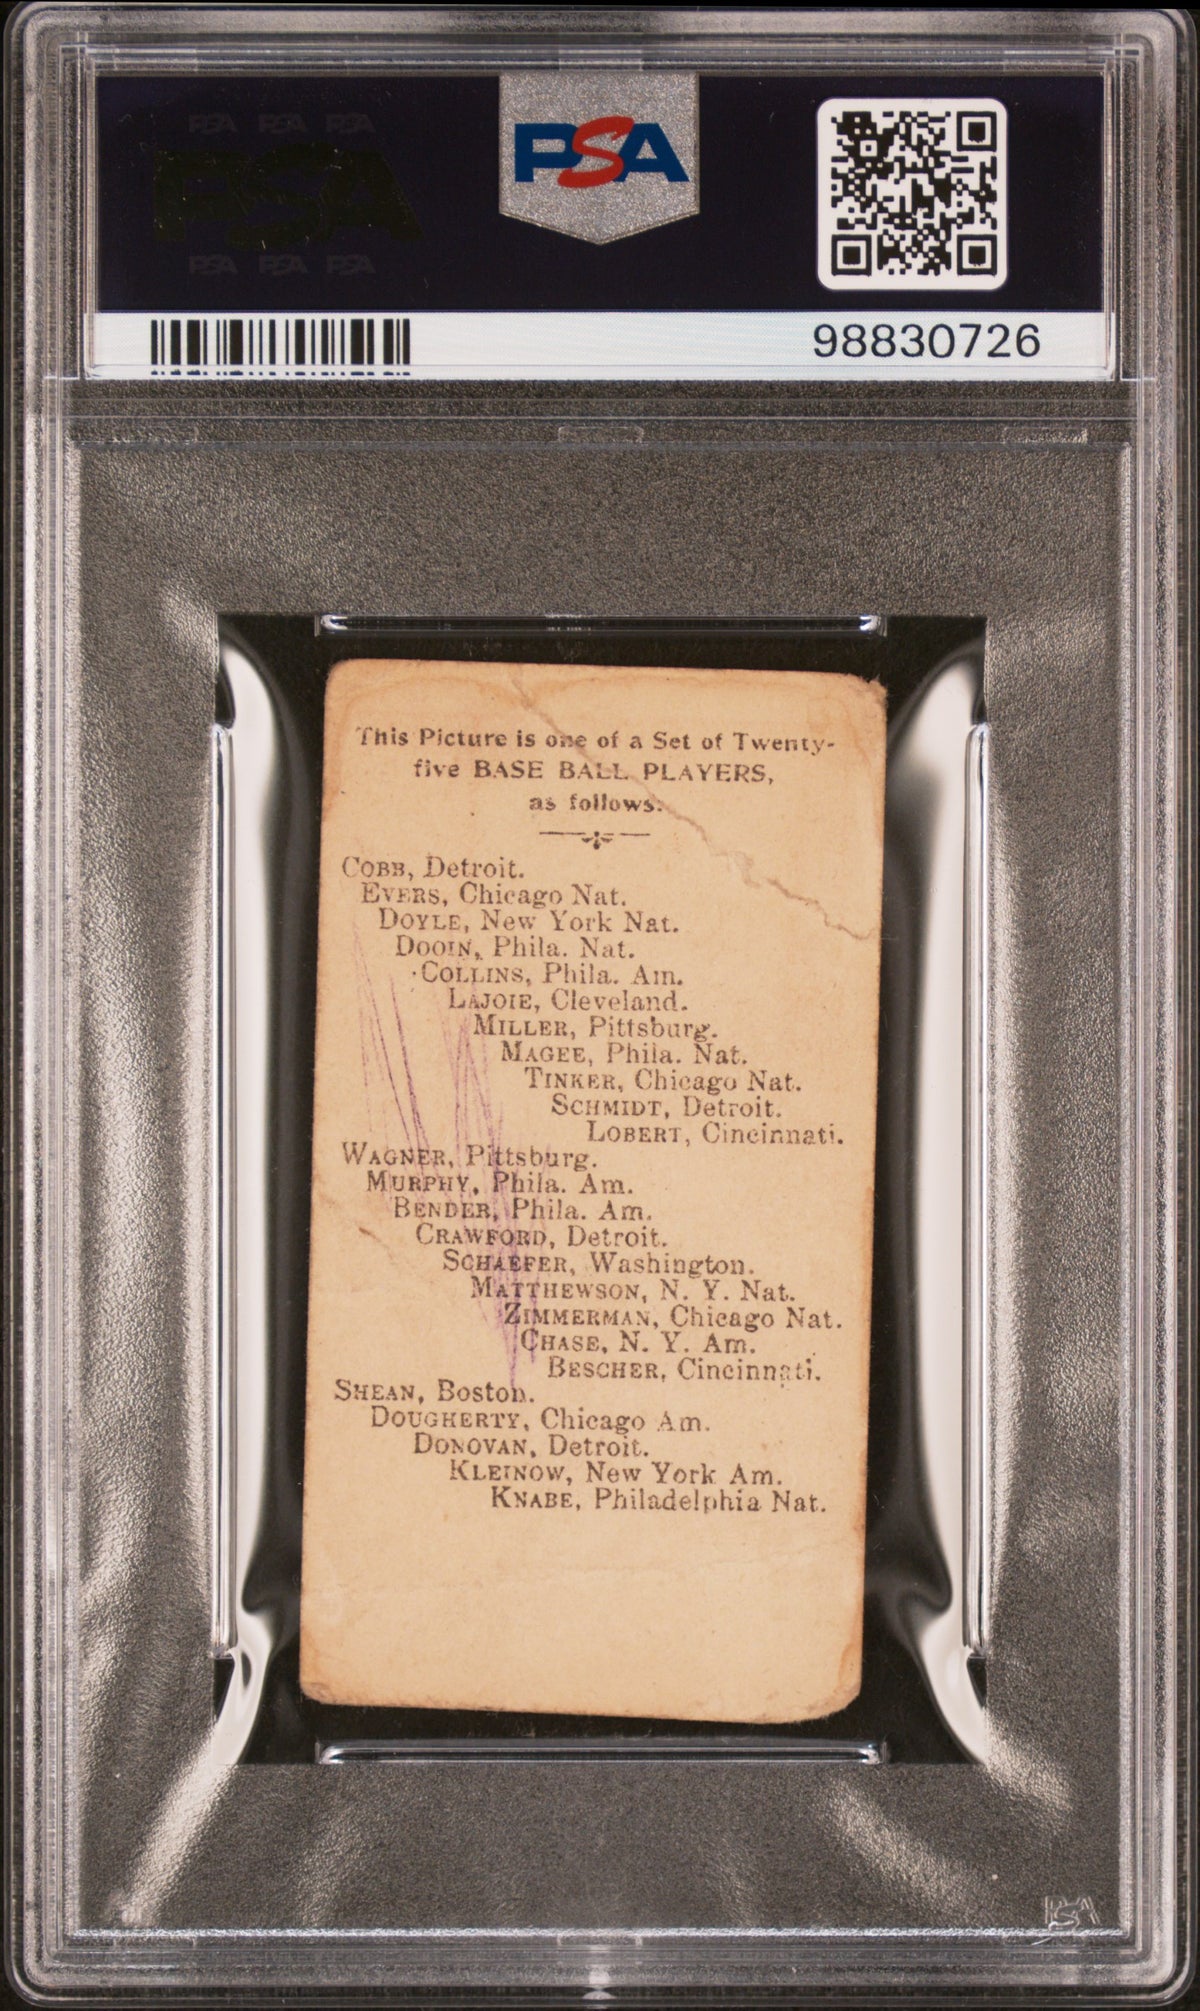 PSA PSA PSA
PSA
PSA PSA PSA
PSA
98830726
This Picture is one of a Set of Twenty-
five BASE BALL PLAYERS,
as follows:
COBB, Detroit.
EVERS, Chicago Nat.
DOYLE, New York Nat.
DOOIN, Phila. Nat.
COLLINS, Phila. Am.
LAJOIE, Cleveland.
MILLER, Pittsburg.
MAGEE, Phila. Nat.
TINKER, Chicago Nat.
SCHMIDT, Detroit.
LOBERT, Cincinnati.
WAGNER, Pittsburg.
MURPHY, Phila. Am.
BENDER, Phila. Am.
CRAWFORD, Detroit.
SCHAEFER, Washington.
MATTHEWSON, N. Y. Nat.
ZIMMERMAN, Chicago Nat.
CHASE, N. Y. Am.
BESCHER, Cincinnati.
SHEAN, Boston.
DOUGHERTY, Chicago Am.
DONOVAN, Detroit.
KLEINOW, New York Am.
KNABE, Philadelphia Nat.
PSA